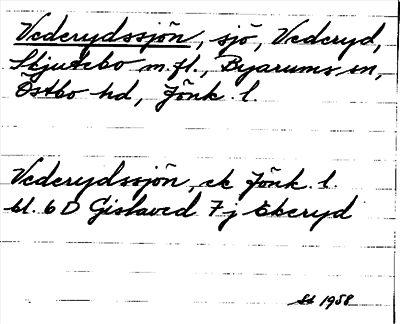 Vederydssjön, sjö, Vederyd,
Skjutebo m.fl., Byarums sn,
Östbo hd, Jönk. l.
Vederydssjön, ek Jönk. l.
bl. 6 D Gislaved 7 j Ekeryd
1958